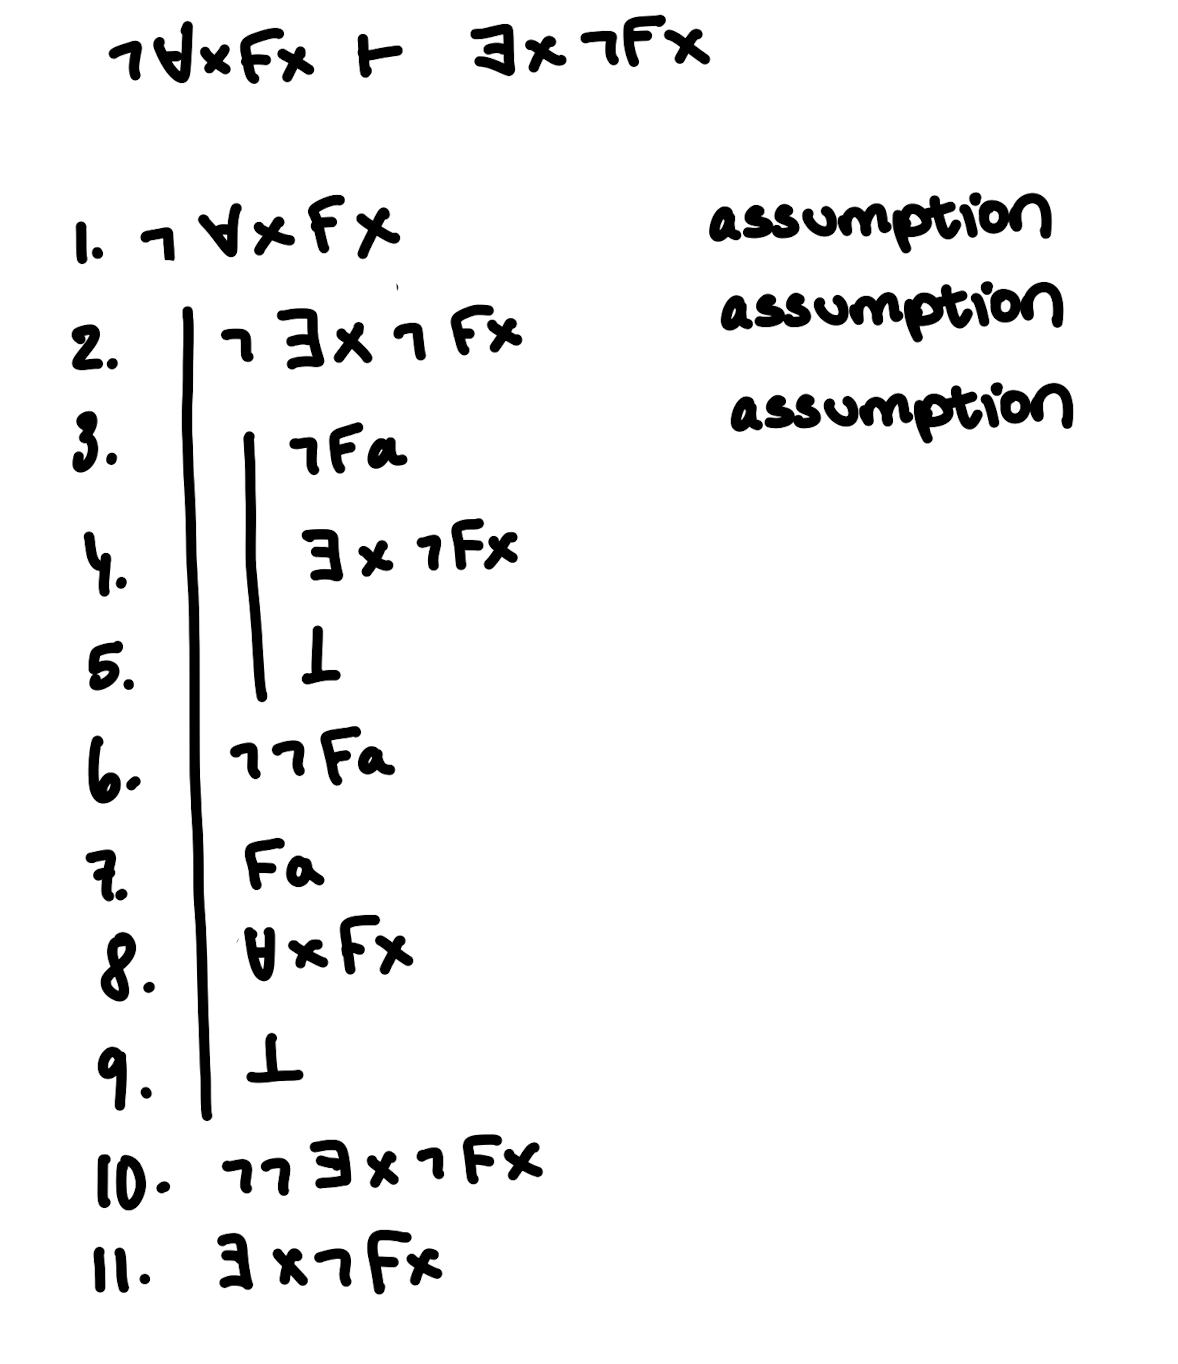 ¬∀xFx ⊢ ∃x¬Fx
1. ¬∀xFx assumption
2. ¬∃x¬Fx assumption
3. ¬Fa assumption
4. ∃x¬Fx
5. ⊥
6. ¬¬Fa
7. Fa
8. ∀xFx
9. ⊥
10. ¬¬∃x¬Fx
11. ∃x¬Fx